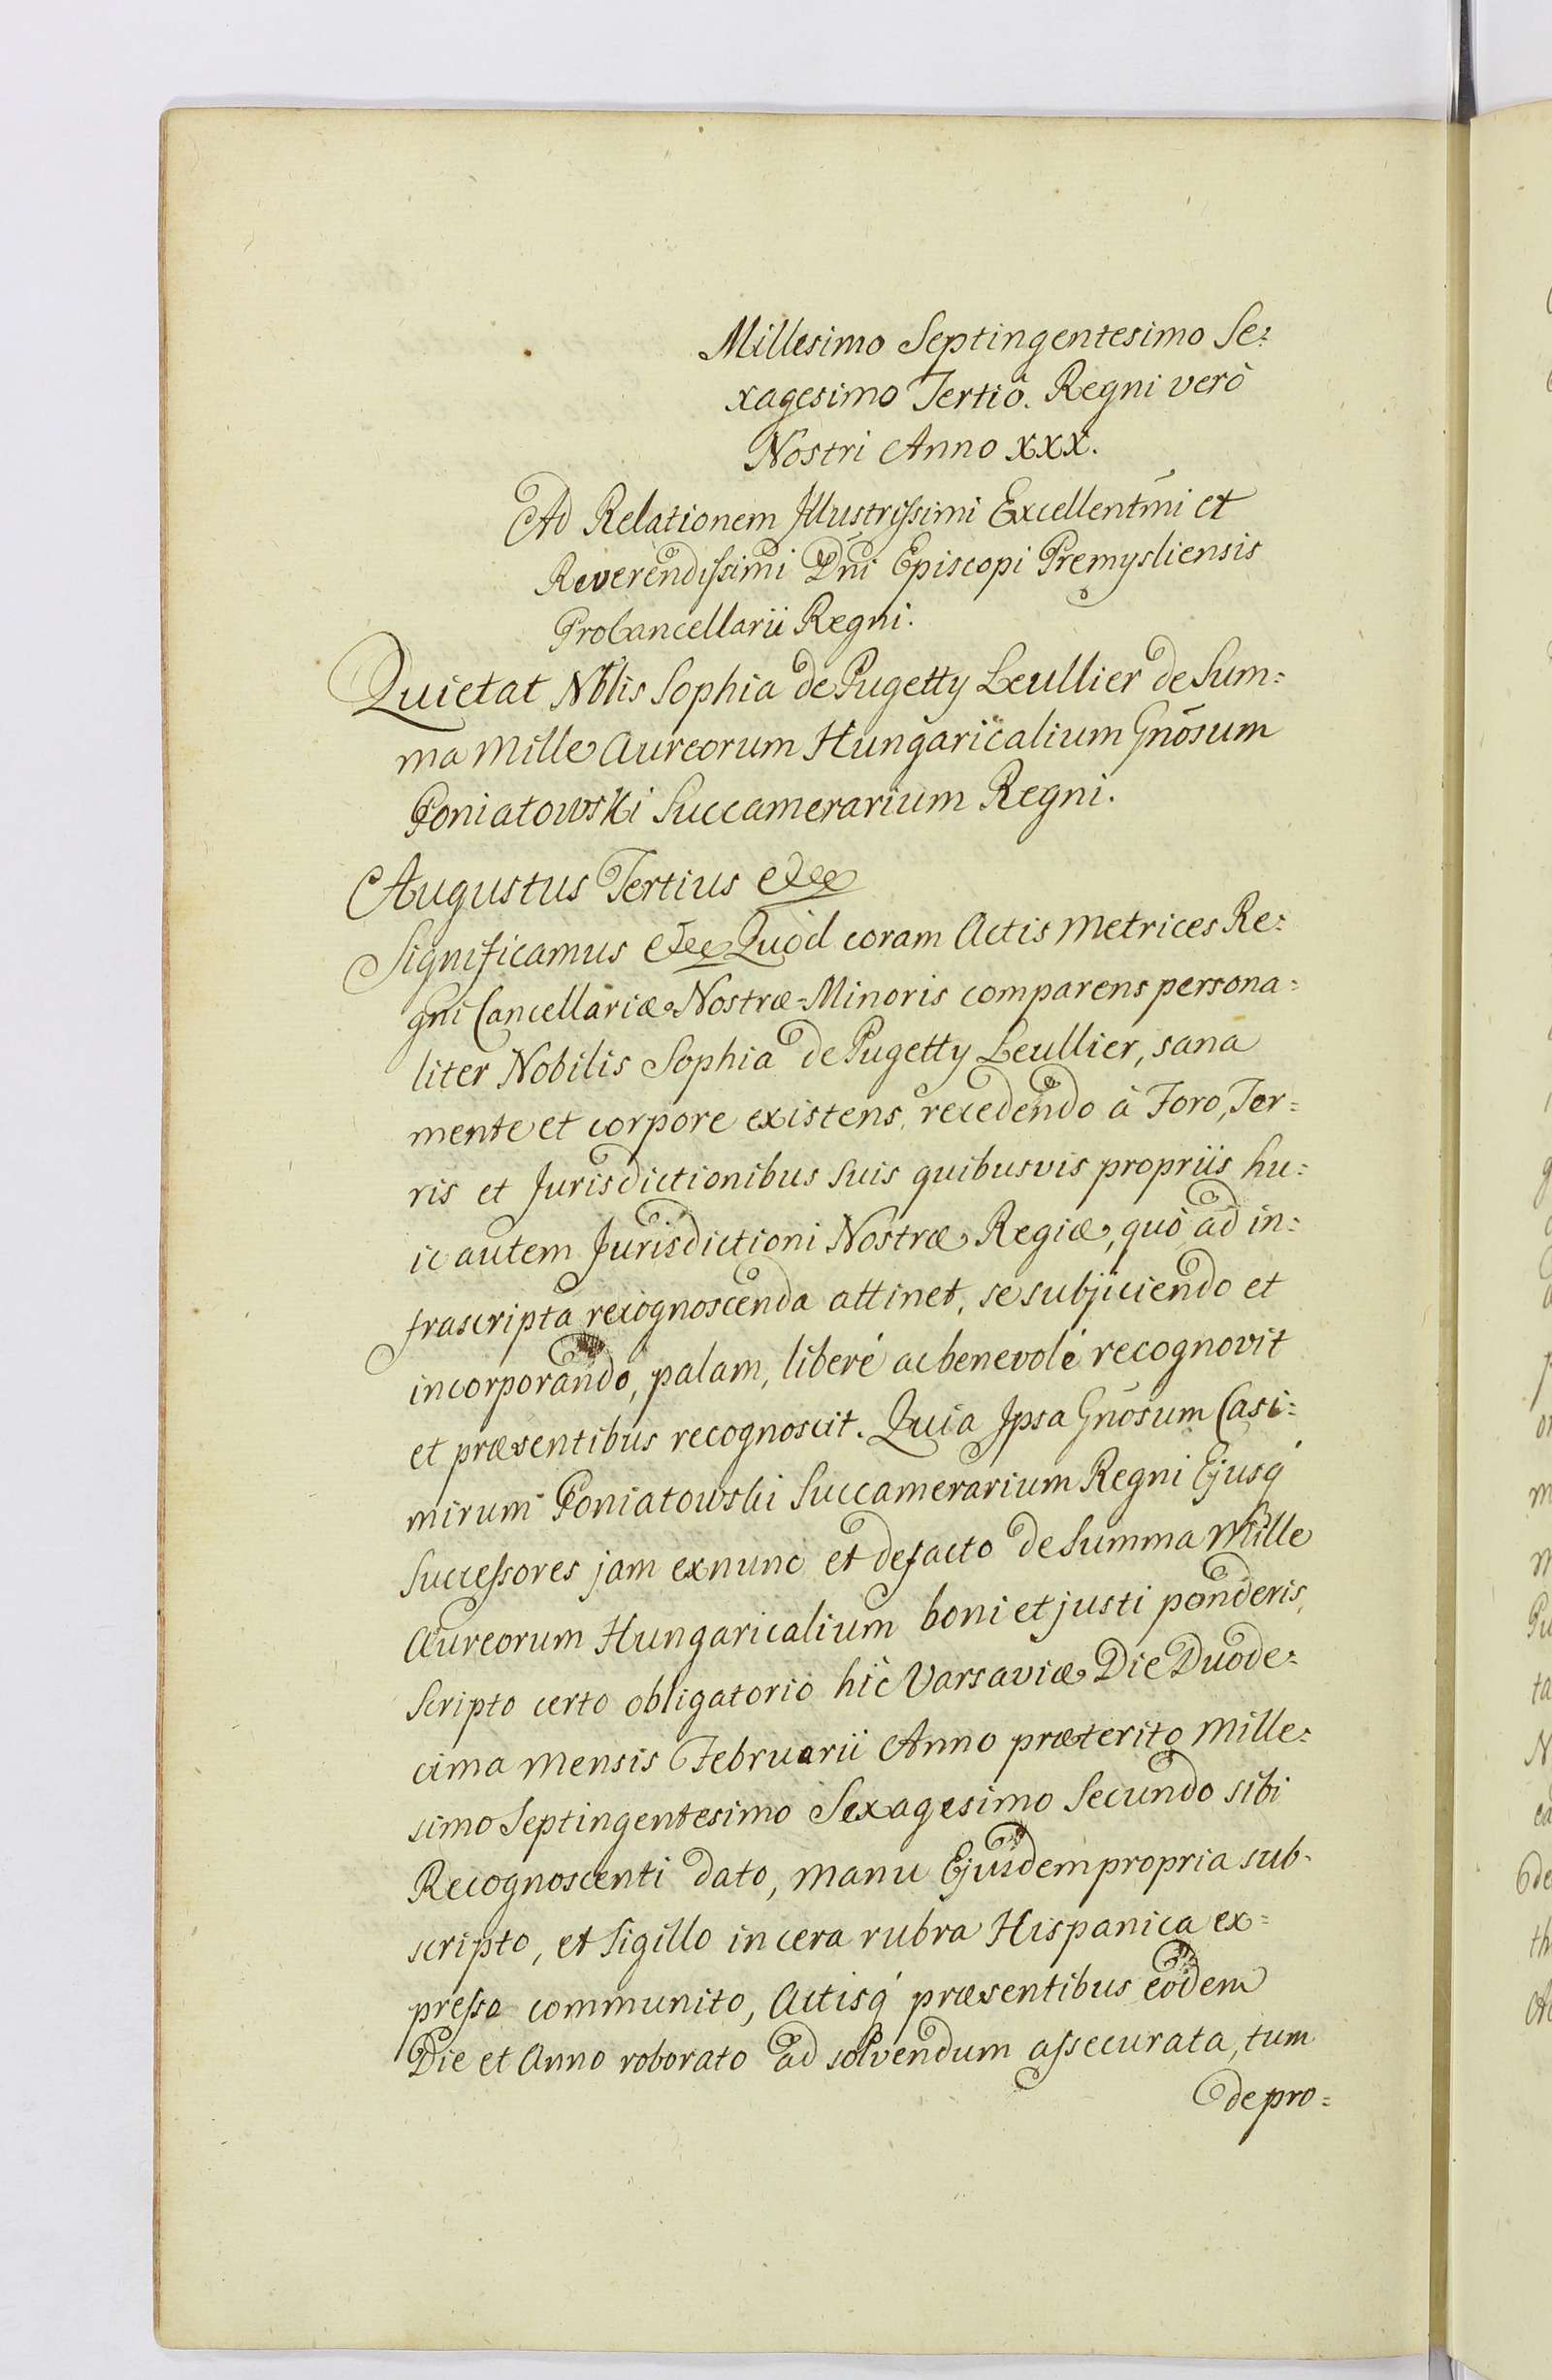 Millesimo Septingentesimo Se=
xagesimo Tertiô. Regni verò
Nostri Anno XXX.
Ad Relationem Illustrissimi Excellentm̄i et
Reverendissimi Dn̄i Episcopi Premysliensis
ProCancellarii Regni.
Quietat Nblis Sophia de Pugetty Leullier de Sum=
ma Mille Aureorum Hungaricalium Gn̄osum
Poniatowski Succamerarium Regni.
Augustus Tertius etc
Significamus etc Quòd coram Actis Metrices Re=
gni Cancellariæ Nostræ Minoris comparens persona=
liter Nobilis Sophia de Pugetty Leullier, sana
mente et corpore existens, recedendo à Foro, Ter=
ris et Jurisdictionibus suis quibusvis propriis hu=
ic autem Jurisdictioni Nostræ Regiæ, quò ad in=
frascripta recognoscenda attinet, se subjiciendo et
incorporando, palam, liberé ac benevolé recognovit
et præsentibus recognoscit. Quia Ipsa Gn̄osum Casi=
mirum Poniatowski Succamerarium Regni Ejusq́
Successores jam exnunc et defacto de Summa Mille
Aureorum Hungaricalium boni et justi ponderis,
Scripto certo obligatorio hîc Varsaviæ Die Duode=
cima Mensis Februarii Anno præterito Mille=
simo Septingentesimo Sexagesimo Secundo sibi
Recognoscenti dato, manu Ejusdem propria sub=
scripto, et Sigillo in cera rubra Hispanica ex=
presso communito, Actisq́ præsentibus eodem
Die et Anno roborato ad solvendum assecurata, tum
de pro=